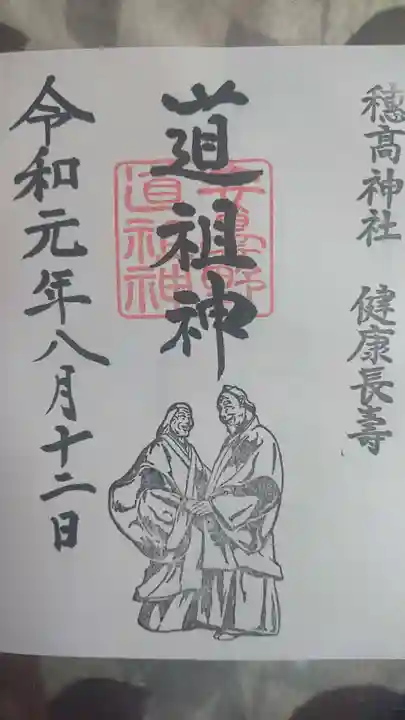 穂高神社　健康長壽
道祖神
安曇野
道祖神
令和元年八月十二日